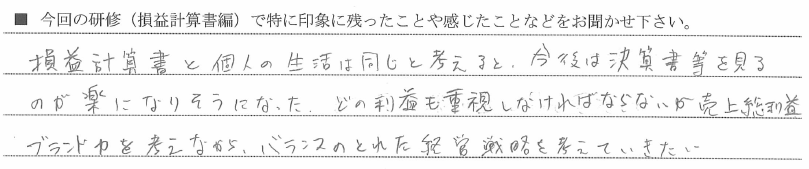 ■ 今回の研修（損益計算書編）で特に印象に残ったことや感じたことなどをお聞かせ下さい。
損益計算書と個人の生活は同じと考えると、今後は決算書等を見る
のが楽になりそうになった。どの利益も重視しなければならないが売上総利益
ブランド力を考えながら、バランスのとれた経営戦略を考えていきたい